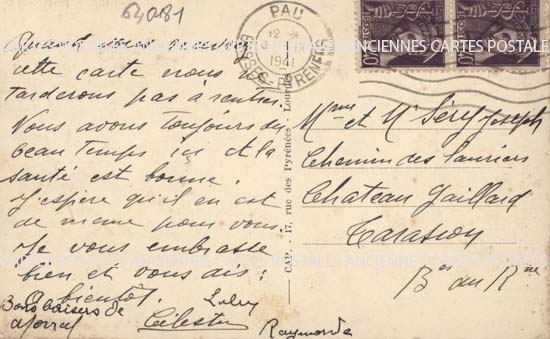 64081
Quand vous aurez
cette carte nous ne
tarderons pas à rentrer.
Vous avons toujours du
beau temps ici et la
santé est bonne.
J'espère qu'il en est
de même pour vous.
Je vous embrasse
bien et vous dis :
à bientôt.
Bons baisers de
Célestin
Raymonde
CAP. - 17, rue des Pyrénées - Lourdes
PAU
1941
BSSES-PYRENEES
Mme et Mr Joseph
Chemin des Lauriers
Chateau Gaillard
Tarascon
Bes du Rne
ANCIENNES CARTES POSTALES